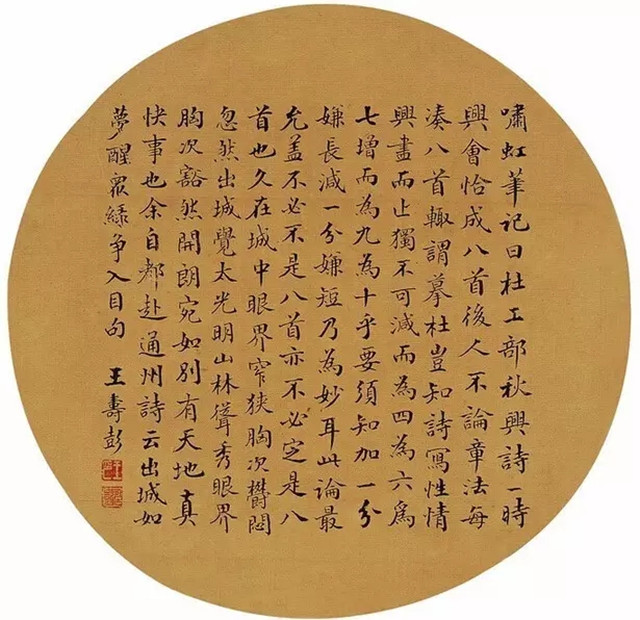 嘯虹筆记曰杜工部秋興詩一時
興會恰成八首後人不論章法每
湊八首輙謂摹杜豈知詩寫性情
興盡而止獨不可減而為四為六為
七增而為九為十乎要須知加一分
嫌長減一分嫌短乃為妙耳此論最
允盖不必不是八首亦不必定是八
首也久在城中眼界窄狹胸次欝悶
忽然出城覺太光明山林聳秀眼界
胸次豁然開朗宛如别有天地真
快事也余自都赴通州詩云出城如
夢醒衆緑争入目句
王壽彭